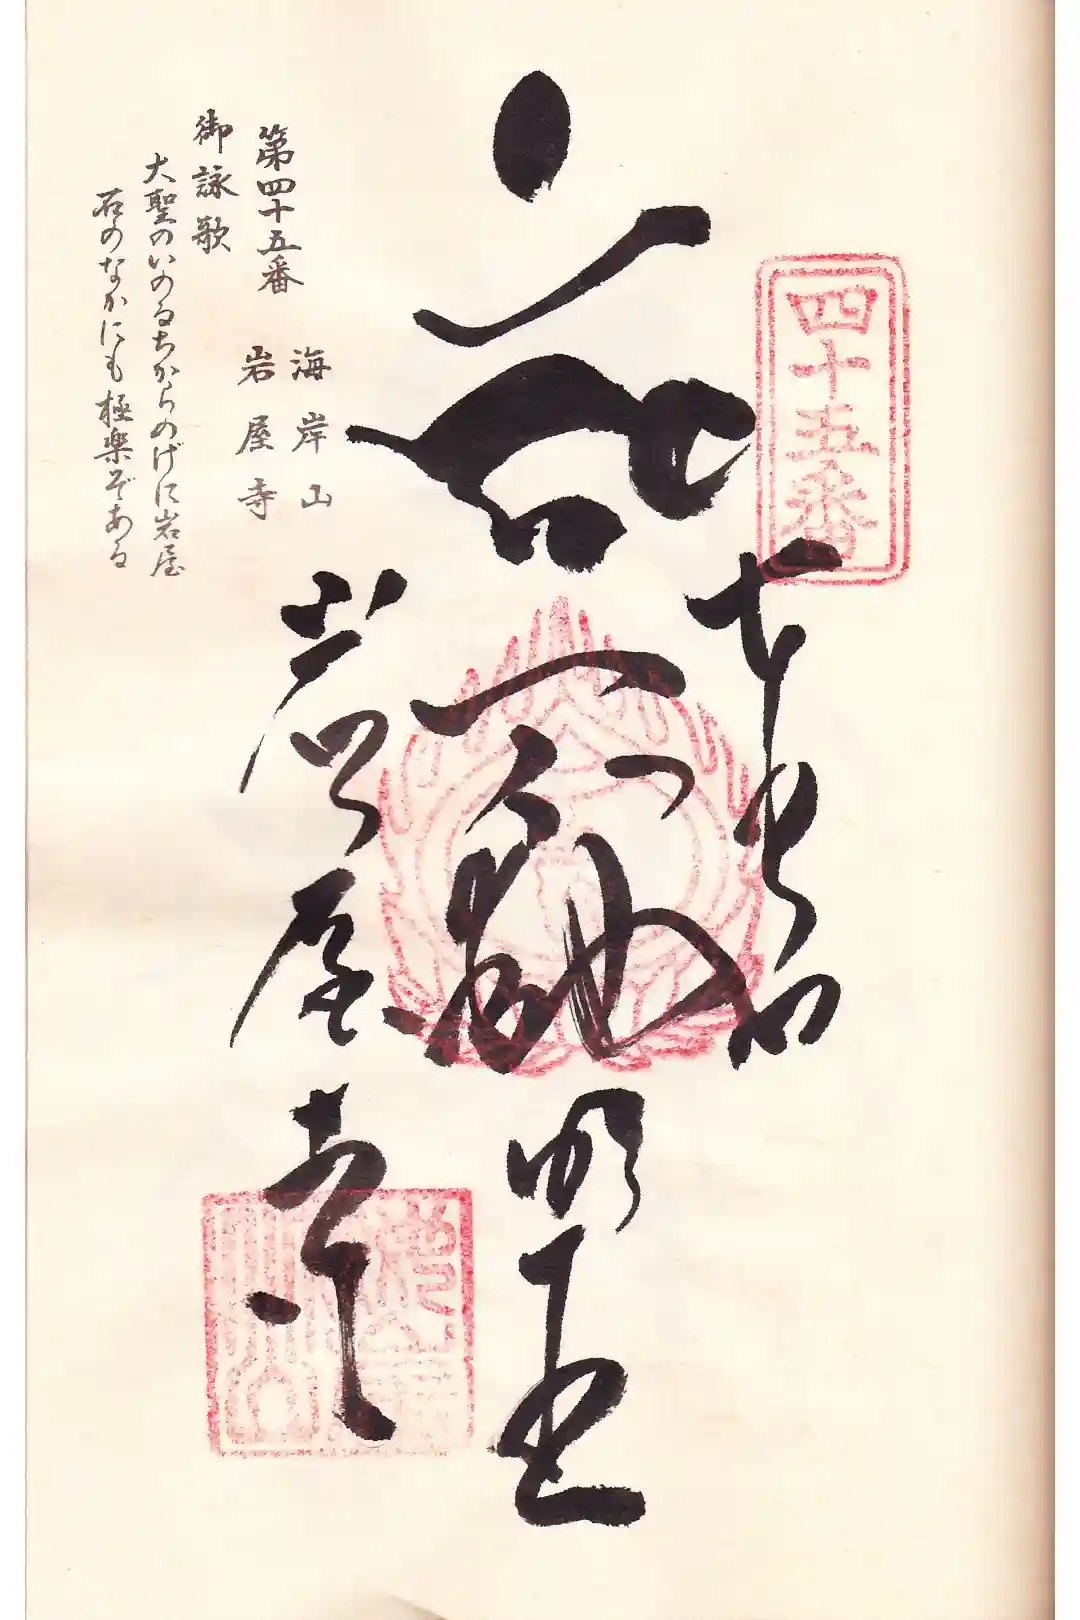 四十五番
奉納
不動明王
岩屋寺
第四十五番
海岸山
岩屋寺
御詠歌
大聖のいのるちからのげに岩屋
石のなかにも極楽ぞある